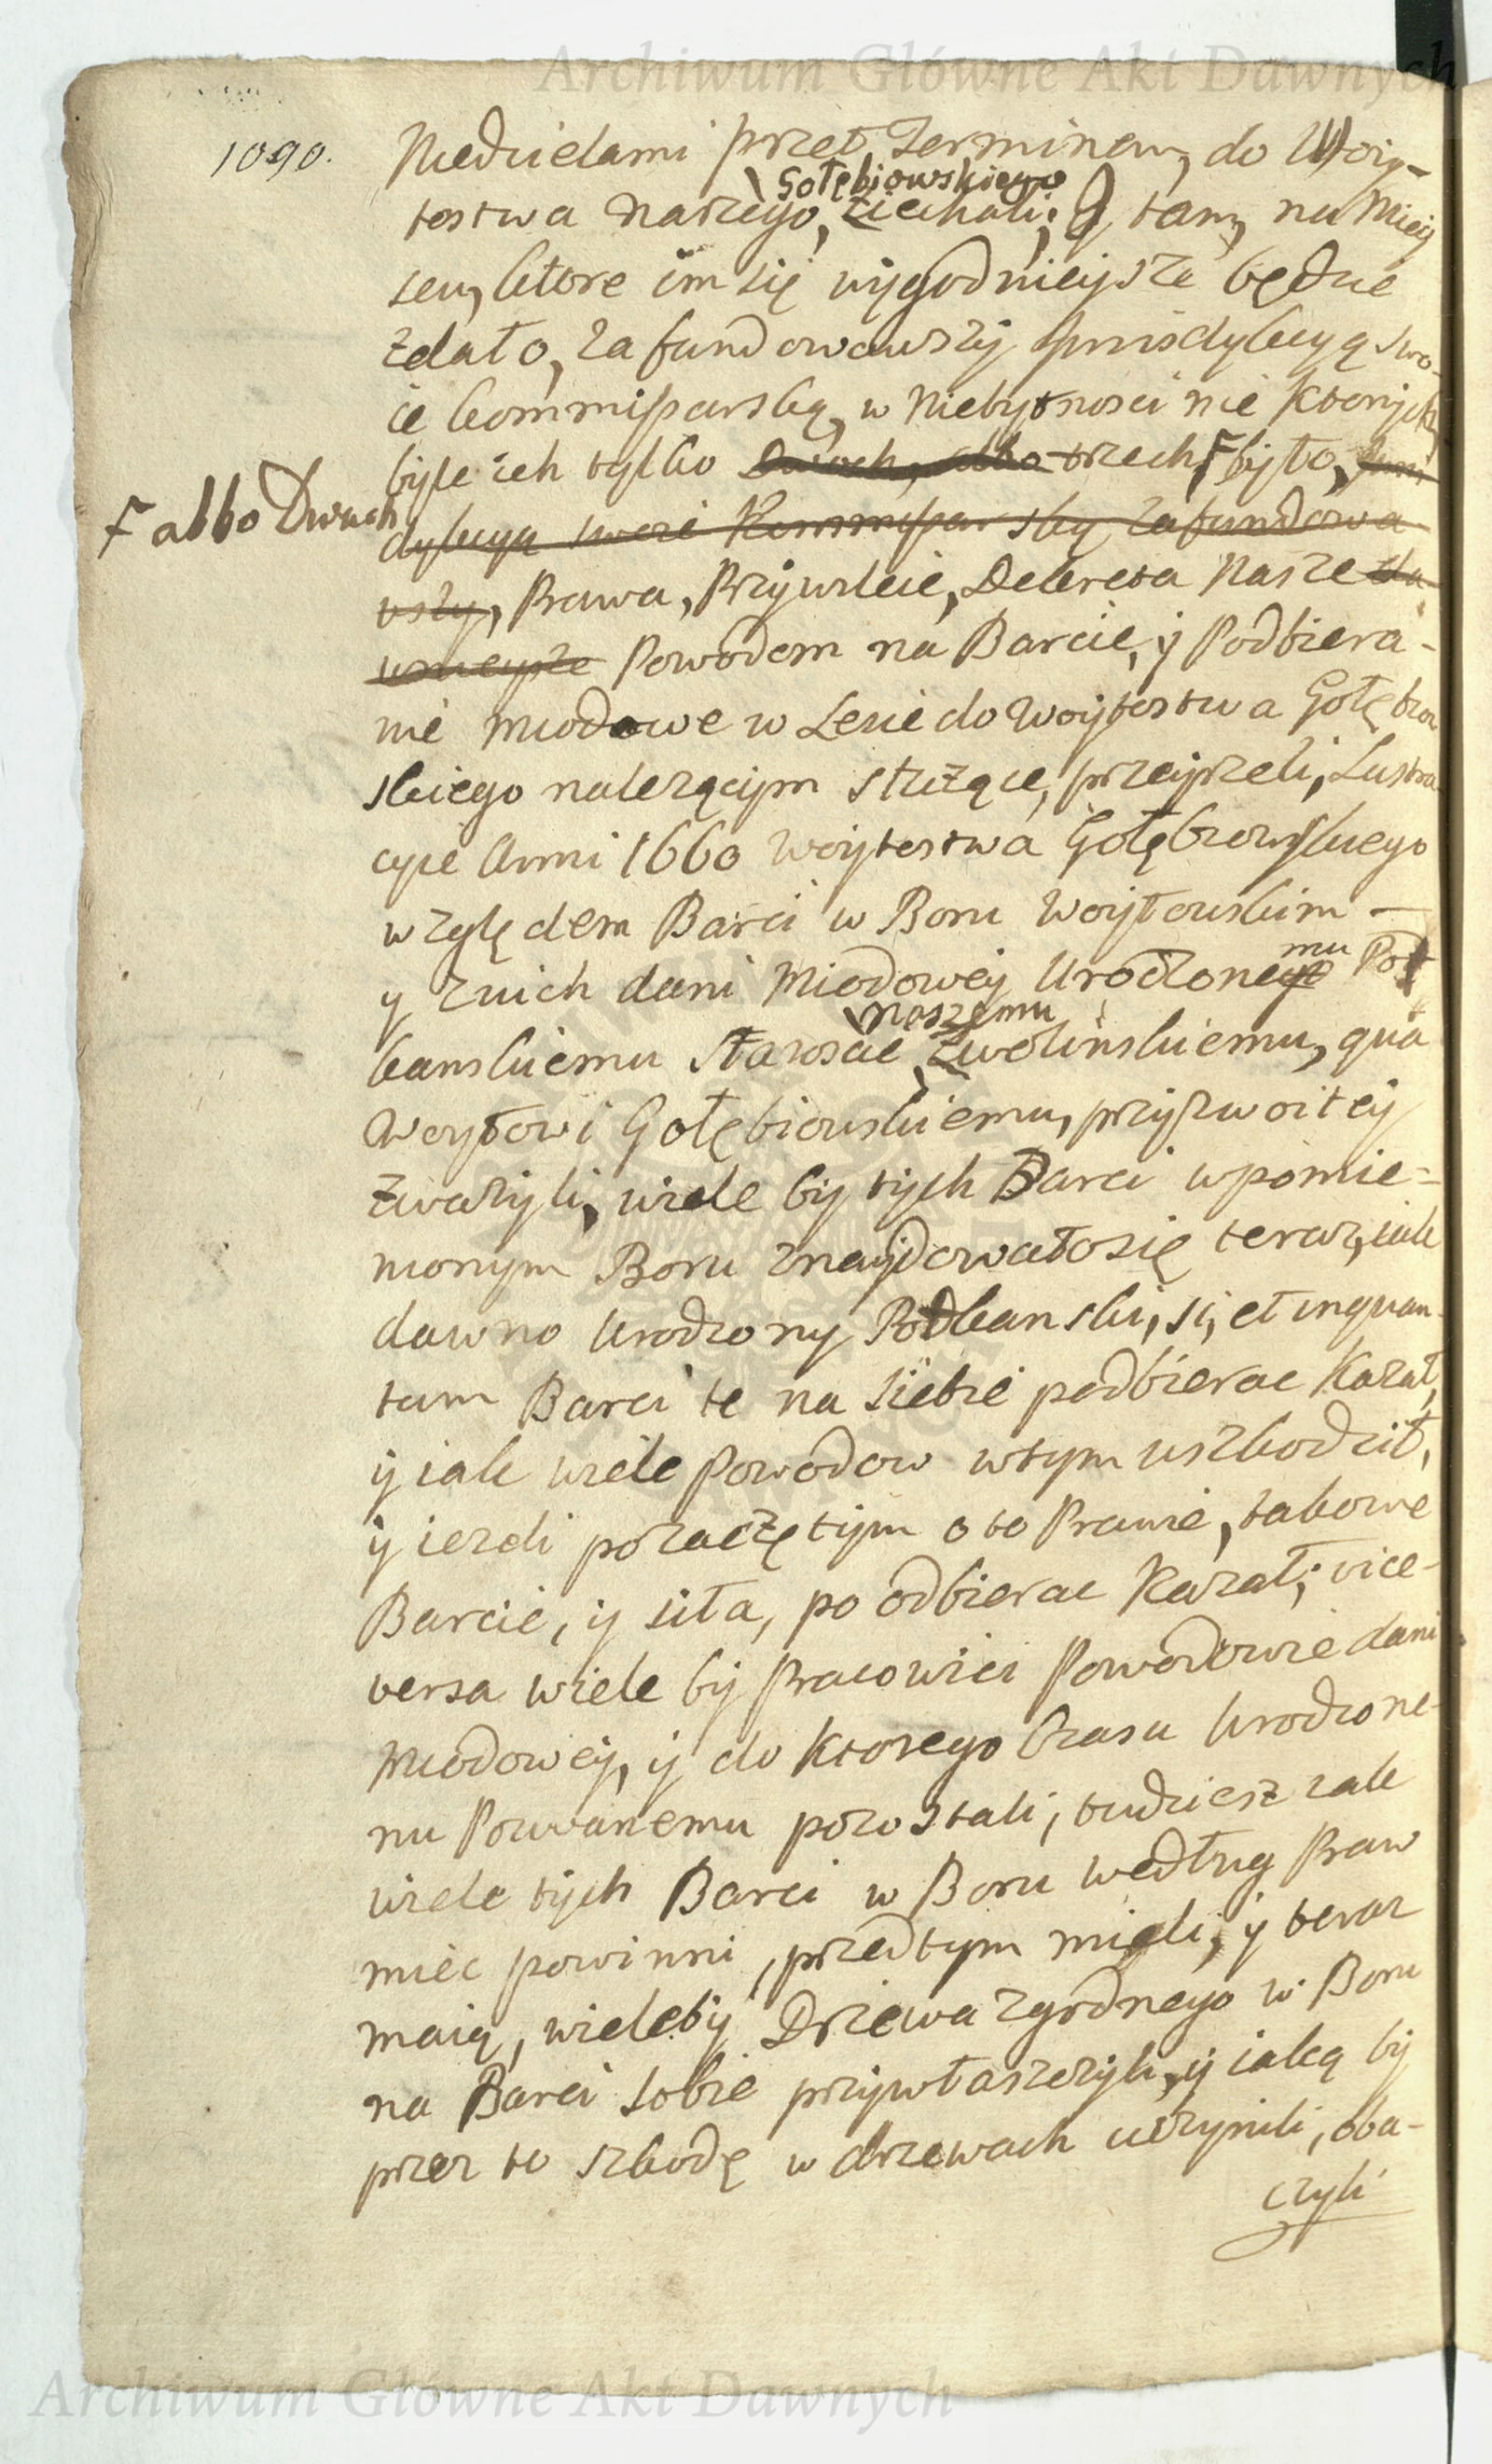 Archiwum Główne Akt Dawnych
1090.
Niedzielami przed Terminem, do Woij-
tostwa naszego, Gołębiowskiego ziechali; Y tam, na Mieij
scu, ktore im się wijgodnieijsze będzie
zdało, zafundowawszij Jurisdykcyą swo-
ie kommissarską, w Niebytnosci nie ktorijch,
bijle ich tylko dwoch, albo trzech, F bijło, Juris
F albo Dwuch
dykcyą swoie Kommissarską zafundowa
wszy, Prawa, Przijwileie, Dekreta Nasze
Powodom na Barcie, ij Podbiera-
nie miodowe w Lesie do Woijtostwa Gołębiow
skiego nalezącijm służące, przeijrzeli, Lustra
cyie Anni 1660 Woijtostwa Gołębiowskiego
względem Barci w Boru Woijtowskim –
y z nich dani Miodoweij Urodzonemu Pod
kanskiemu Staroscie, naszemu Zwolinskiemu, qua
Woytowi Gołębiowskiemu, przijzwoiteij
zważijli, wiele bij tijch Barci wpomie-
nionym Boru znaijdowało się teraz, iak
dawno Urodzony Podkanski, si, et inquan-
tum Barci te na siebie podbierac Kazał,
ij iak wiele Powodow wtym uszkodził,
ij iezeli po zaczętijm o to Prawie, takowe
Barcie, ij siła, po odbierac Kazał; vice-
versa wiele bij Pracowici Powodowie dani
Miodoweij, ij do ktorego Czasu Urodzone-
mu Pozwanemu pozostali, tudziesz iak
wiele tijch Barci w Boru według Praw
miec powinni, przedtym mieli, ij teraz
maią, wieleby Drzewa zgodnego w Boru
na Barci sobie przijwłaszczyli, ij iaką bij
przez to szkodę w drzewach uczynili, oba-
czyli
Archiwum Główne Akt Dawnych